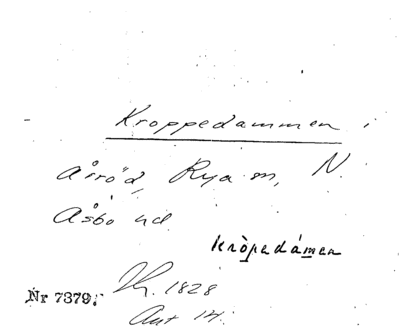 Kroppedammen i
Åröd, Rya sn, N.
Åsbo hd.
kròpedámen
Nr 7379.
1828
Ant 14.